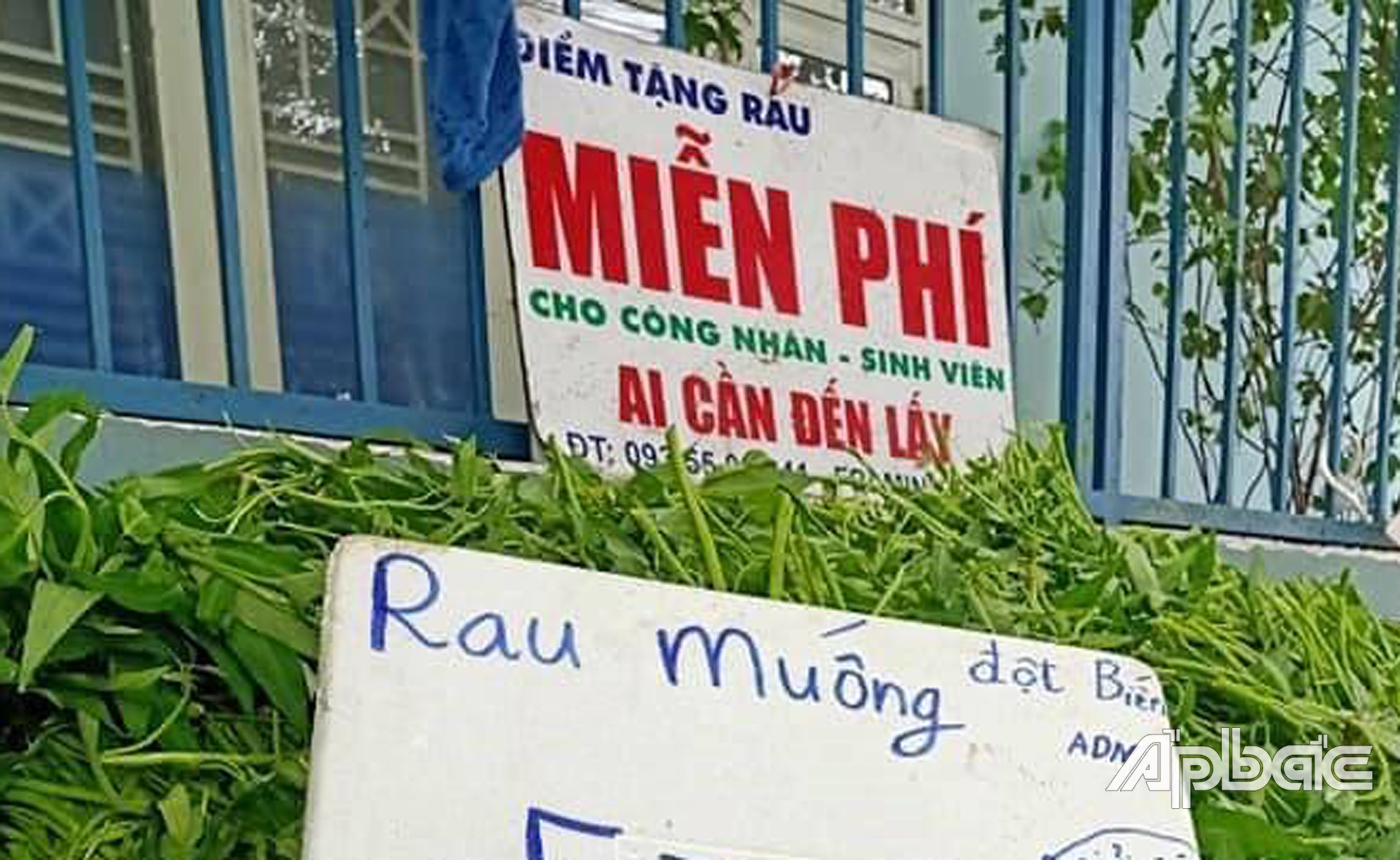 ĐIỂM TẶNG RAU
MIỄN PHÍ
CHO CÔNG NHÂN - SINH VIÊN
AI CẦN ĐẾN LẤY
ĐT:
Rau Muống đột Biến
ADN
Apbắc